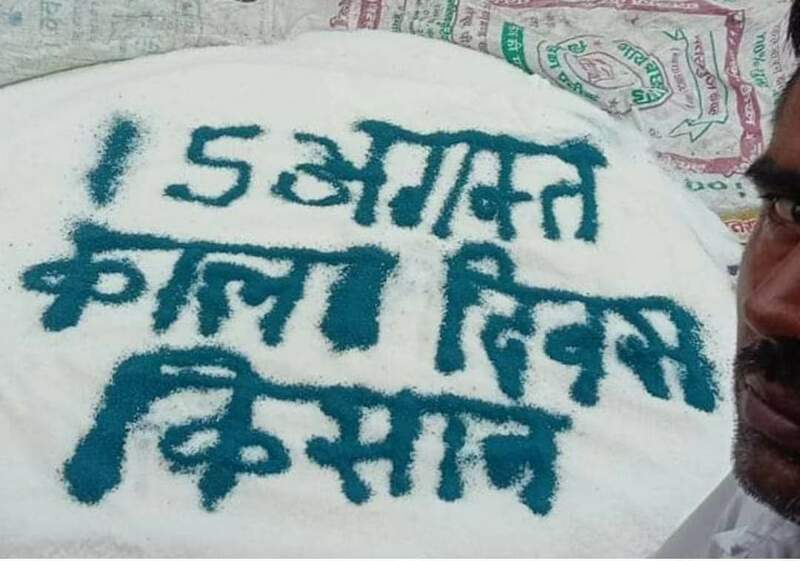 15 अगस्त
काला दिवस
किसान